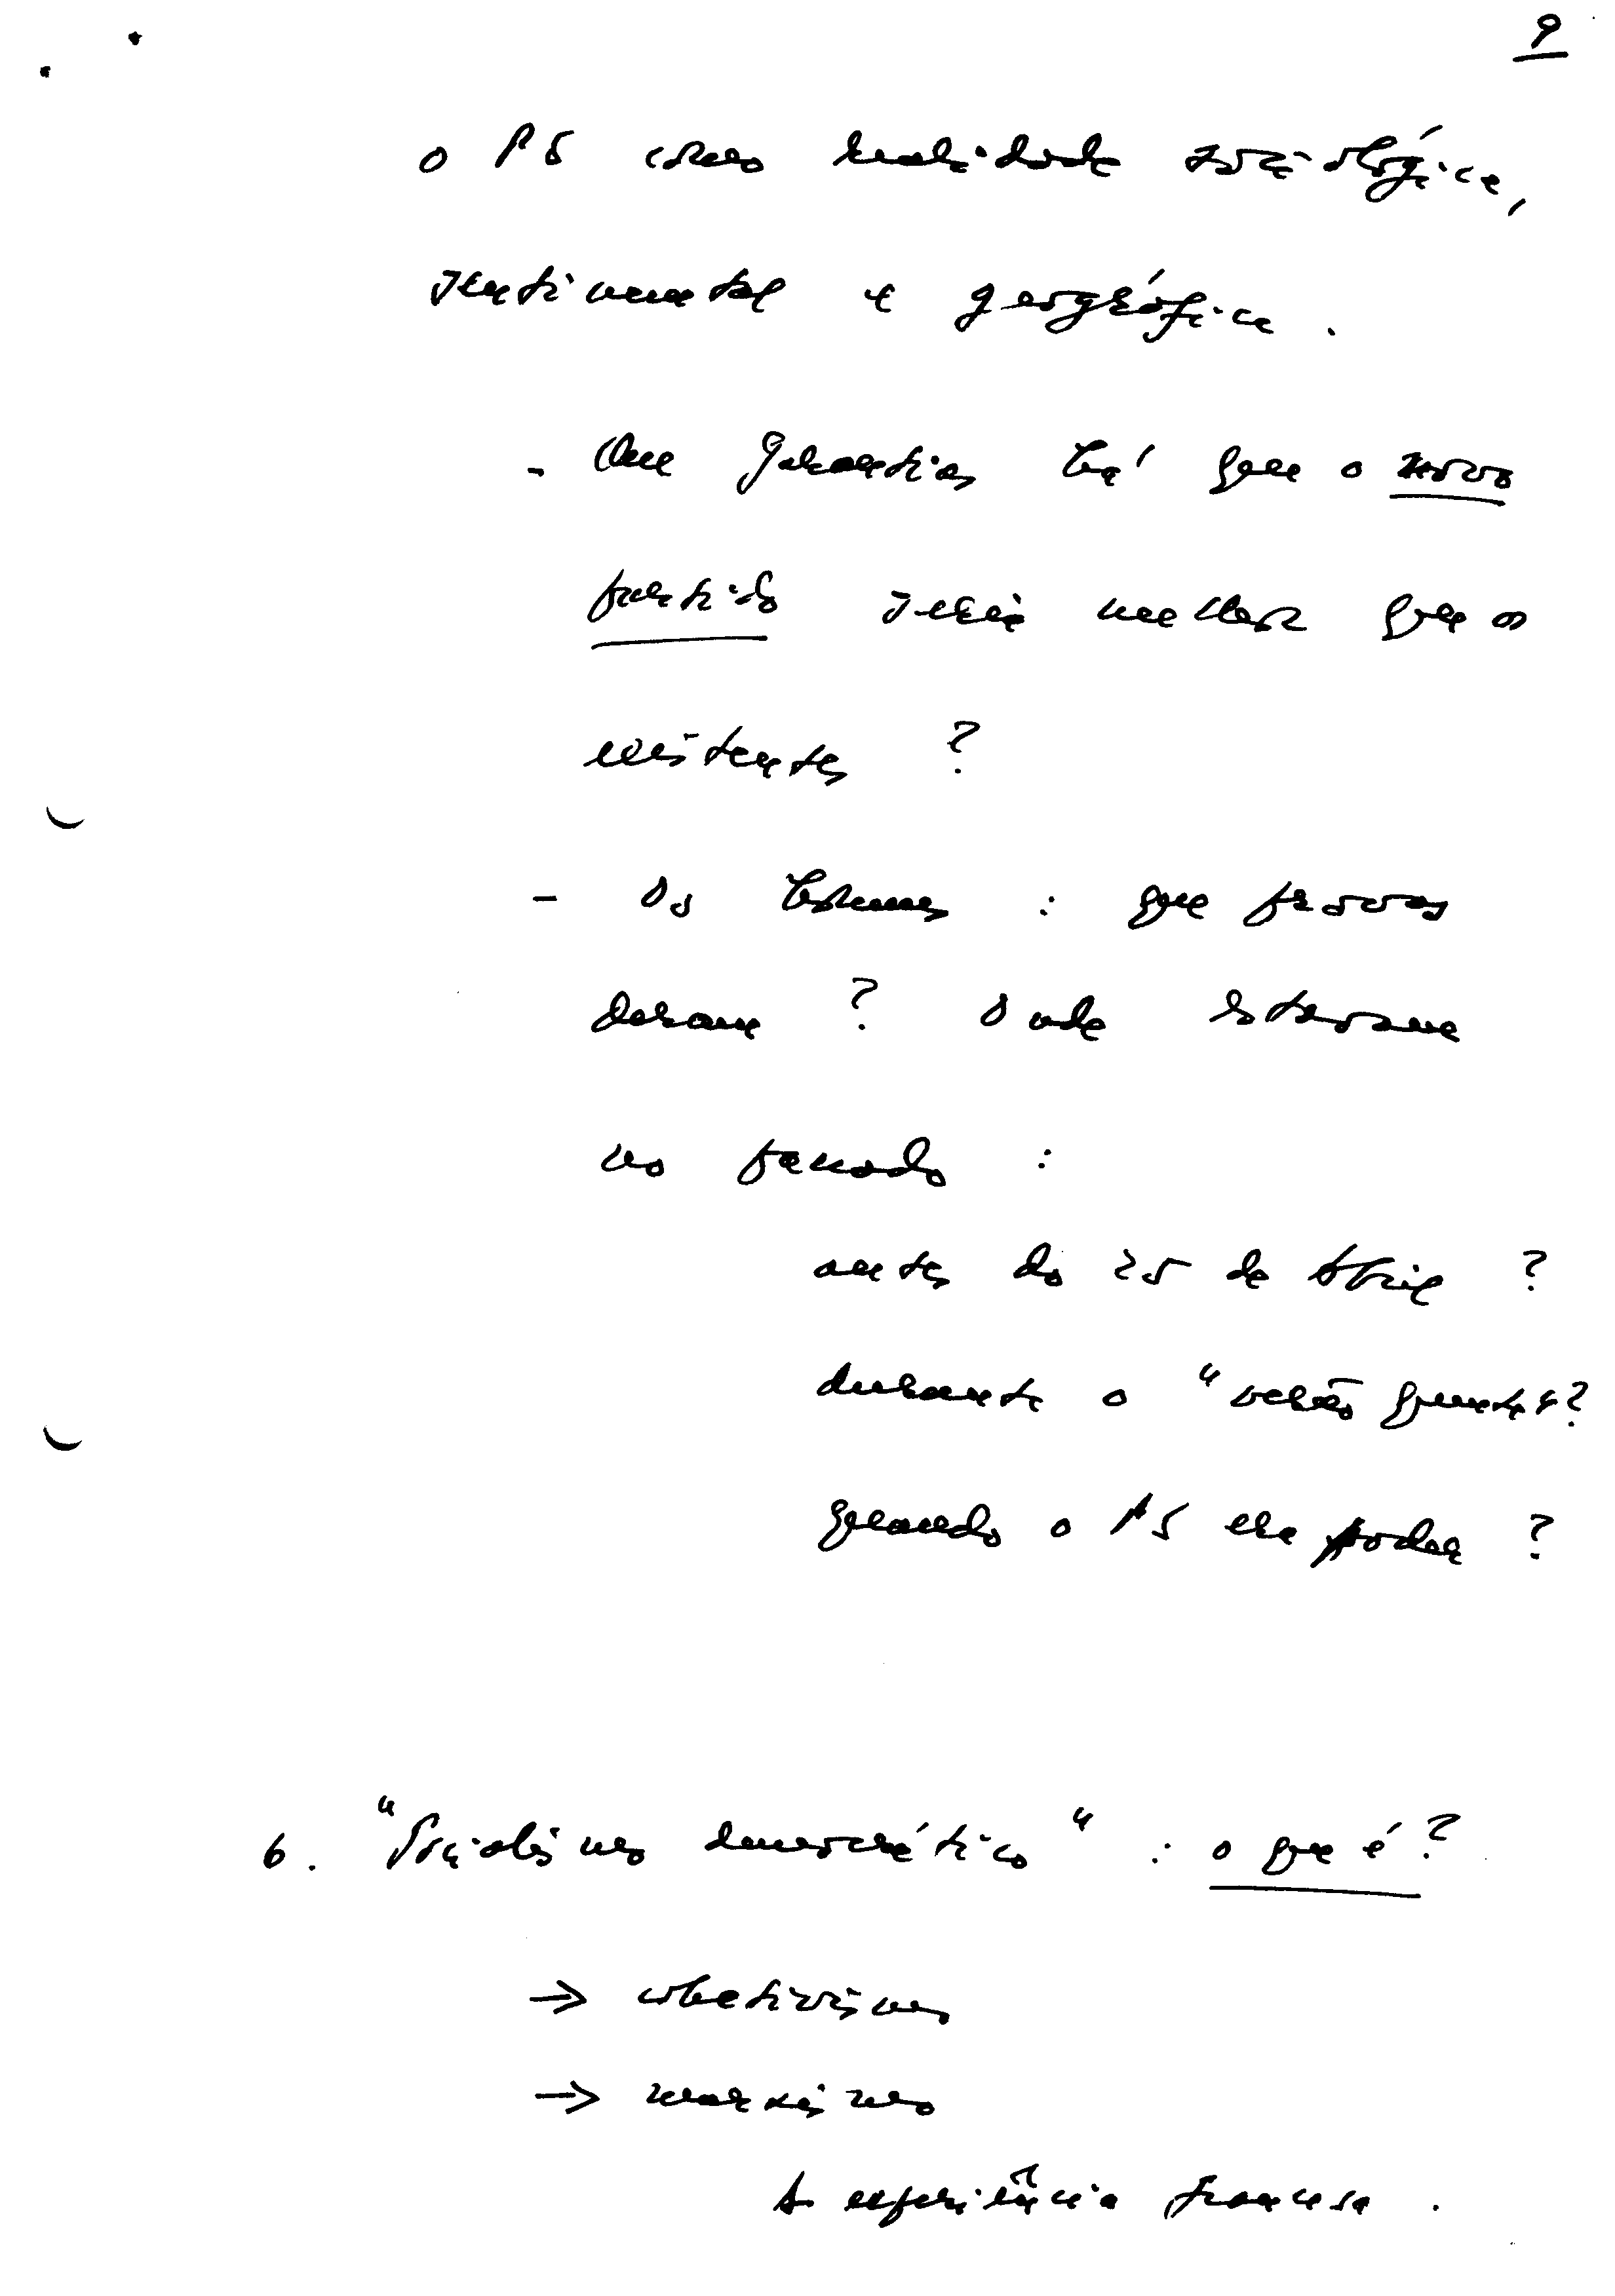 9
o PS como realidade sociológica,
sentimental e geográfica.
- Que garantias há que o novo
partido seria melhor que os
existentes ?
- Os homens : que provas
deram ? Onde estavam
no passado :
antes do 25 de Abril ?
durante o "verão quente"?
quando o PS era poder ?
6. "Socialismo democrático" : o que é ?
→ coletivismo
→ marxismo
A experiência francesa .